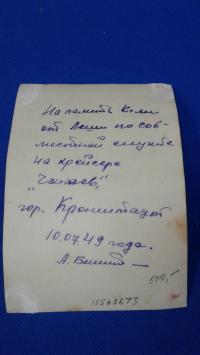 На память Коли
от Леши по сов-
местной службе
на крейсере
"Чапаев"
гор. Кронштадт
10.07.49 года.
А.
500,-